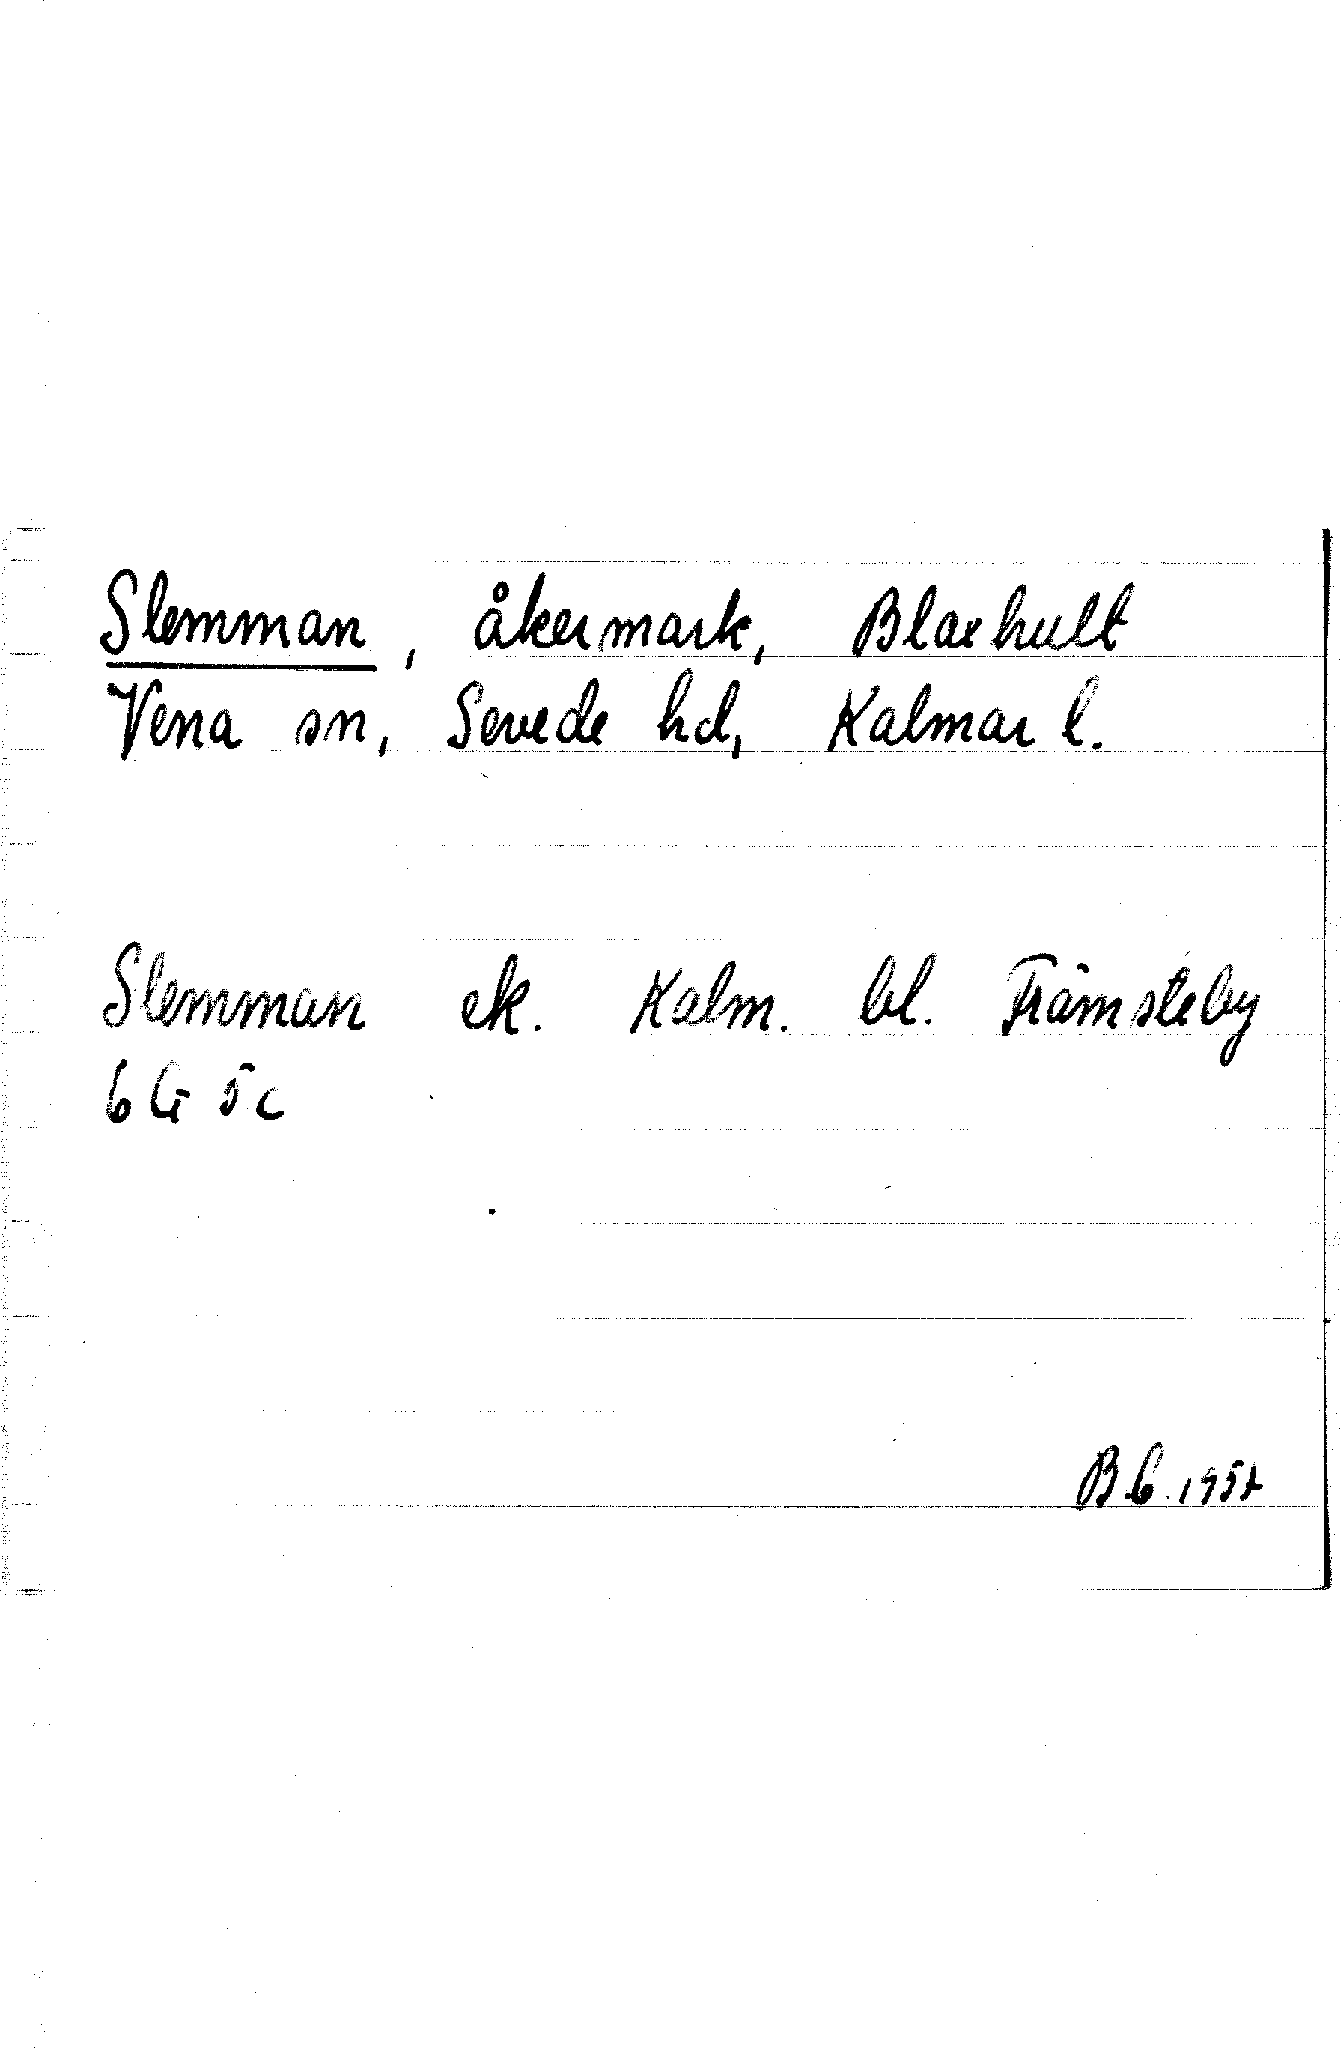 Slemman, åkermark, Blaxhult
Vena sn, Sevede hd, Kalmar l.
Slemman ek. Kalm. bl. Främsteby
6 G 5 c
B.G. 1957